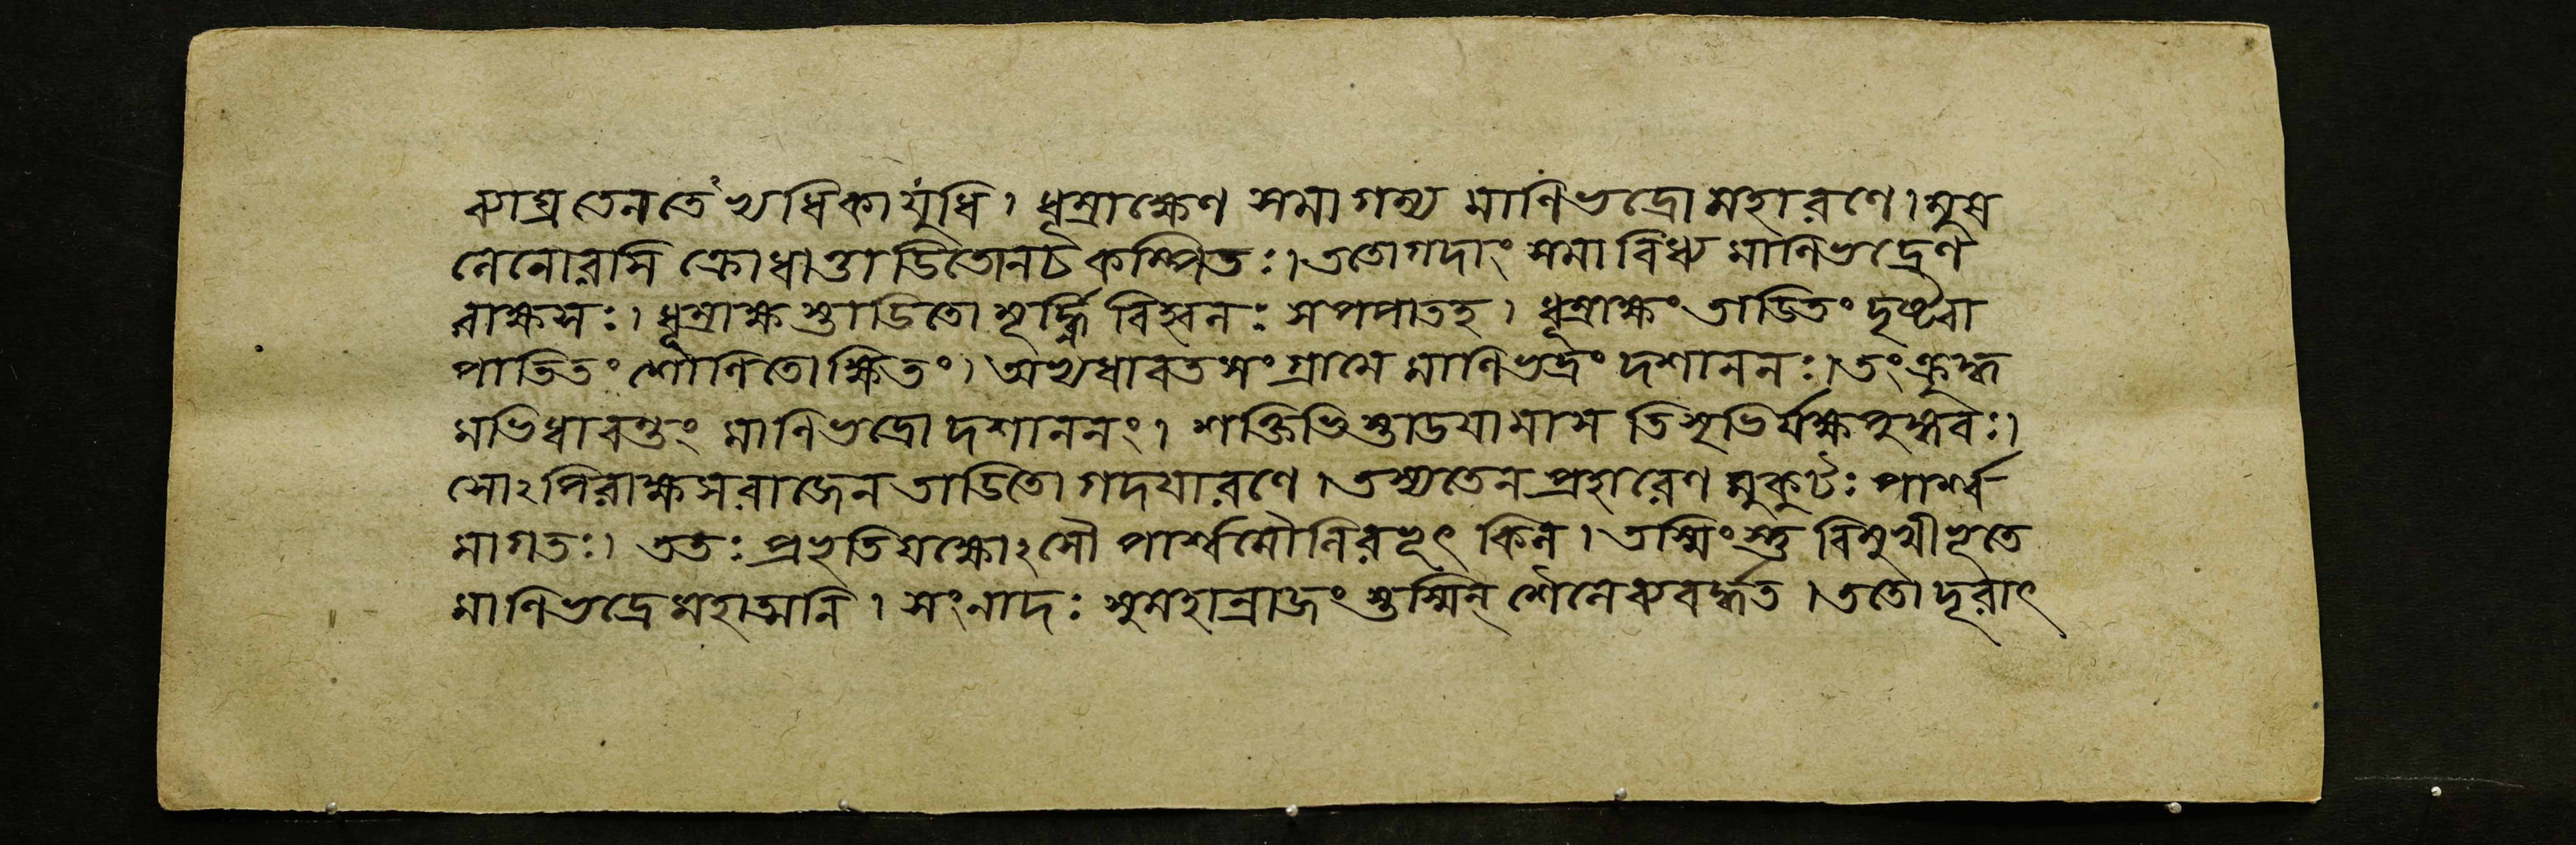 ব্যাশ্রতেনতেঽভ্যধিকাযুধি। ধূম্রাক্ষেণ সমাগম্য মাণিভদ্রো মহারণে। মুস
লেনোরসি ক্রোধাত্তাডিতোনচ কম্পিতঃ। ততোগদাং সমাবিধ্য মাণিভদ্রেণ
রাক্ষসঃ। ধূম্রাক্ষস্তাডিতো মূর্দ্ধ্নি বিহ্বলঃ সপপাতহ। ধূম্রাক্ষং তাডিতং দৃষ্ট্বা
পাতিতং শোণিতোক্ষিতং। অভ্যধাবতসংগ্রামে মাণিভদ্রং দশাননঃ। তংক্রুদ্ধ
মভিধাবন্তং মাণিভদ্রো দশাননং। শক্তিভিস্তাডযামাস তিসৃভির্যক্ষপুঙ্গবঃ।
সোঽপিরাক্ষসরাজেন তাডিতো গদযারণে। তস্যতেন প্রহারেণ মুকুটঃ পার্শ্ব
মাগতঃ। ততঃ প্রভৃতিযক্ষোঽসৌ পার্শ্বমৌলিরভূৎ কিল। তস্মিংস্তু বিমুখীভূতে
মাণিভদ্রে মহাত্মনি। সংনাদঃ সুমহান্রাজংস্তস্মিন্ শৈলেব্যবর্দ্ধত। ততো দূরাৎ